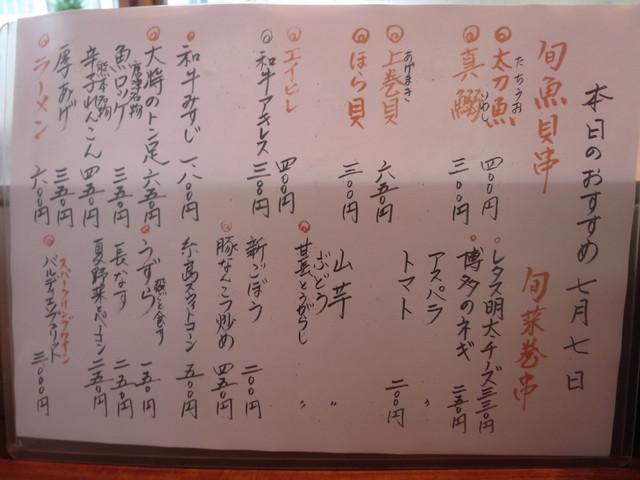 本日のおすすめ 七月七日
旬魚貝串
太刀魚 四〇〇円
たちうお
真鰯 三〇〇円
いわし
上巻貝 六五〇円
あげまき
ほら貝 三〇〇円
エイヒレ 四〇〇円
和牛アキレス 三〇〇円
和牛みすじ 一、八〇〇円
大将のトン足 六五〇円
唐津名物
魚ロッケ 三五〇円
熊本名物
辛子れんこん 四五〇円
厚あげ 三五〇円
ラーメン 六〇〇円
旬菜巻串
レタス明太チーズ 三三〇円
博多のネギ 二五〇円
アスパラ 〃
トマト 二〇〇円
山芋 〃
ぶどう 〃
甘長とうがらし
新ごぼう 二〇〇円
豚なんこつ炒め 四五〇円
糸島スイートコーン 五〇〇円
うずら 殻ごと食す 一五〇円
長なす 二五〇円
夏野菜ベーコン 二五〇円
スパークリングワイン
バルディエスプリット 三、〇〇〇円